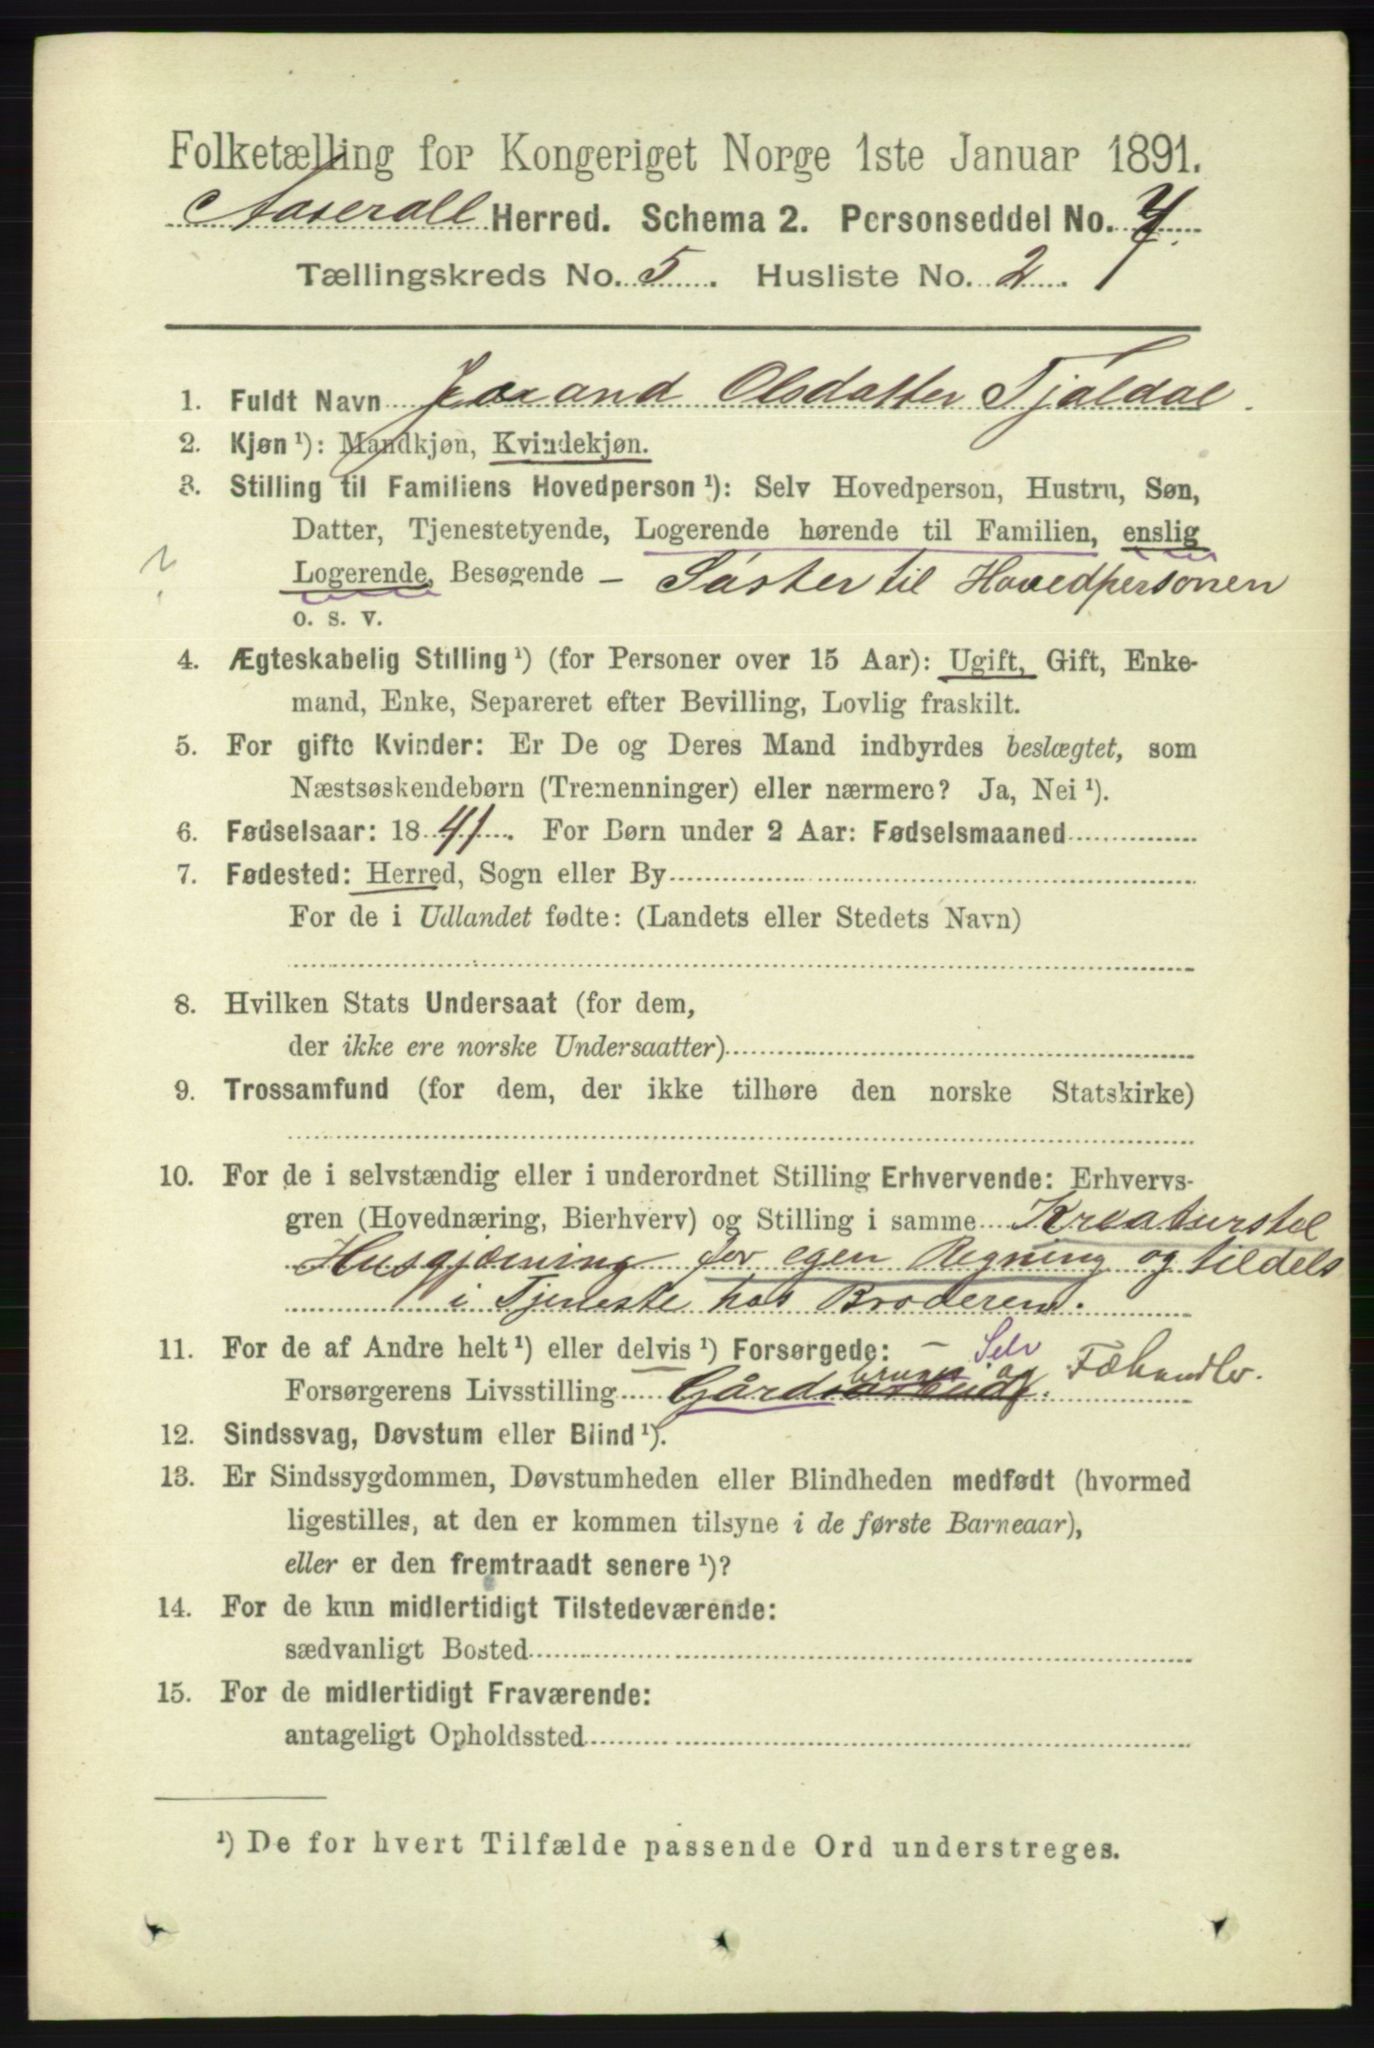 Folketælling for Kongeriget Norge 1ste Januar 1891.
Aaserall Herred. Schema 2. Personseddel No. 7.
Tællingskreds No. 5. Husliste No. 2.
1. Fuldt Navn Jorand Olsdatter Tjaldal.
2. Kjøn ¹): Mandkjøn, Kvindekjøn.
3. Stilling til Familiens Hovedperson ¹): Selv Hovedperson, Hustru, Søn,
Datter, Tjenestetyende, Logerende hørende til Familien, enslig
Logerende, Besøgende – Søster til Hovedpersonen
o. s. v.
4. Ægteskabelig Stilling ¹) (for Personer over 15 Aar): Ugift, Gift, Enke-
mand, Enke, Separeret efter Bevilling, Lovlig fraskilt.
5. For gifte Kvinder: Er De og Deres Mand indbyrdes beslægtet, som
Næstsøskendebørn (Tremenninger) eller nærmere? Ja, Nei ¹).
6. Fødselsaar: 1841. For Børn under 2 Aar: Fødselsmaaned
7. Fødested: Herred, Sogn eller By
For de i Udlandet fødte: (Landets eller Stedets Navn)
8. Hvilken Stats Undersaat (for dem,
der ikke ere norske Undersaatter)
9. Trossamfund (for dem, der ikke tilhøre den norske Statskirke)
10. For de i selvstændig eller i underordnet Stilling Erhvervende: Erhvervs-
gren (Hovednæring, Bierhverv) og Stilling i samme Kreaturstel
Husgjerning for egen Regning og tildels
i Tjeneste hos Broderen.
11. For de af Andre helt ¹) eller delvis ¹) Forsørgede: – Selv
Forsørgerens Livsstilling Gårdbruger og Fæhandler.
12. Sindssvag, Døvstum eller Blind ¹).
13. Er Sindssygdommen, Døvstumheden eller Blindheden medfødt (hvormed
ligestilles, at den er kommen tilsyne i de første Barneaar),
eller er den fremtraadt senere ¹)?
14. For de kun midlertidigt Tilstedeværende:
sædvanligt Bosted
15. For de midlertidigt Fraværende:
antageligt Opholdssted
¹) De for hvert Tilfælde passende Ord understreges.